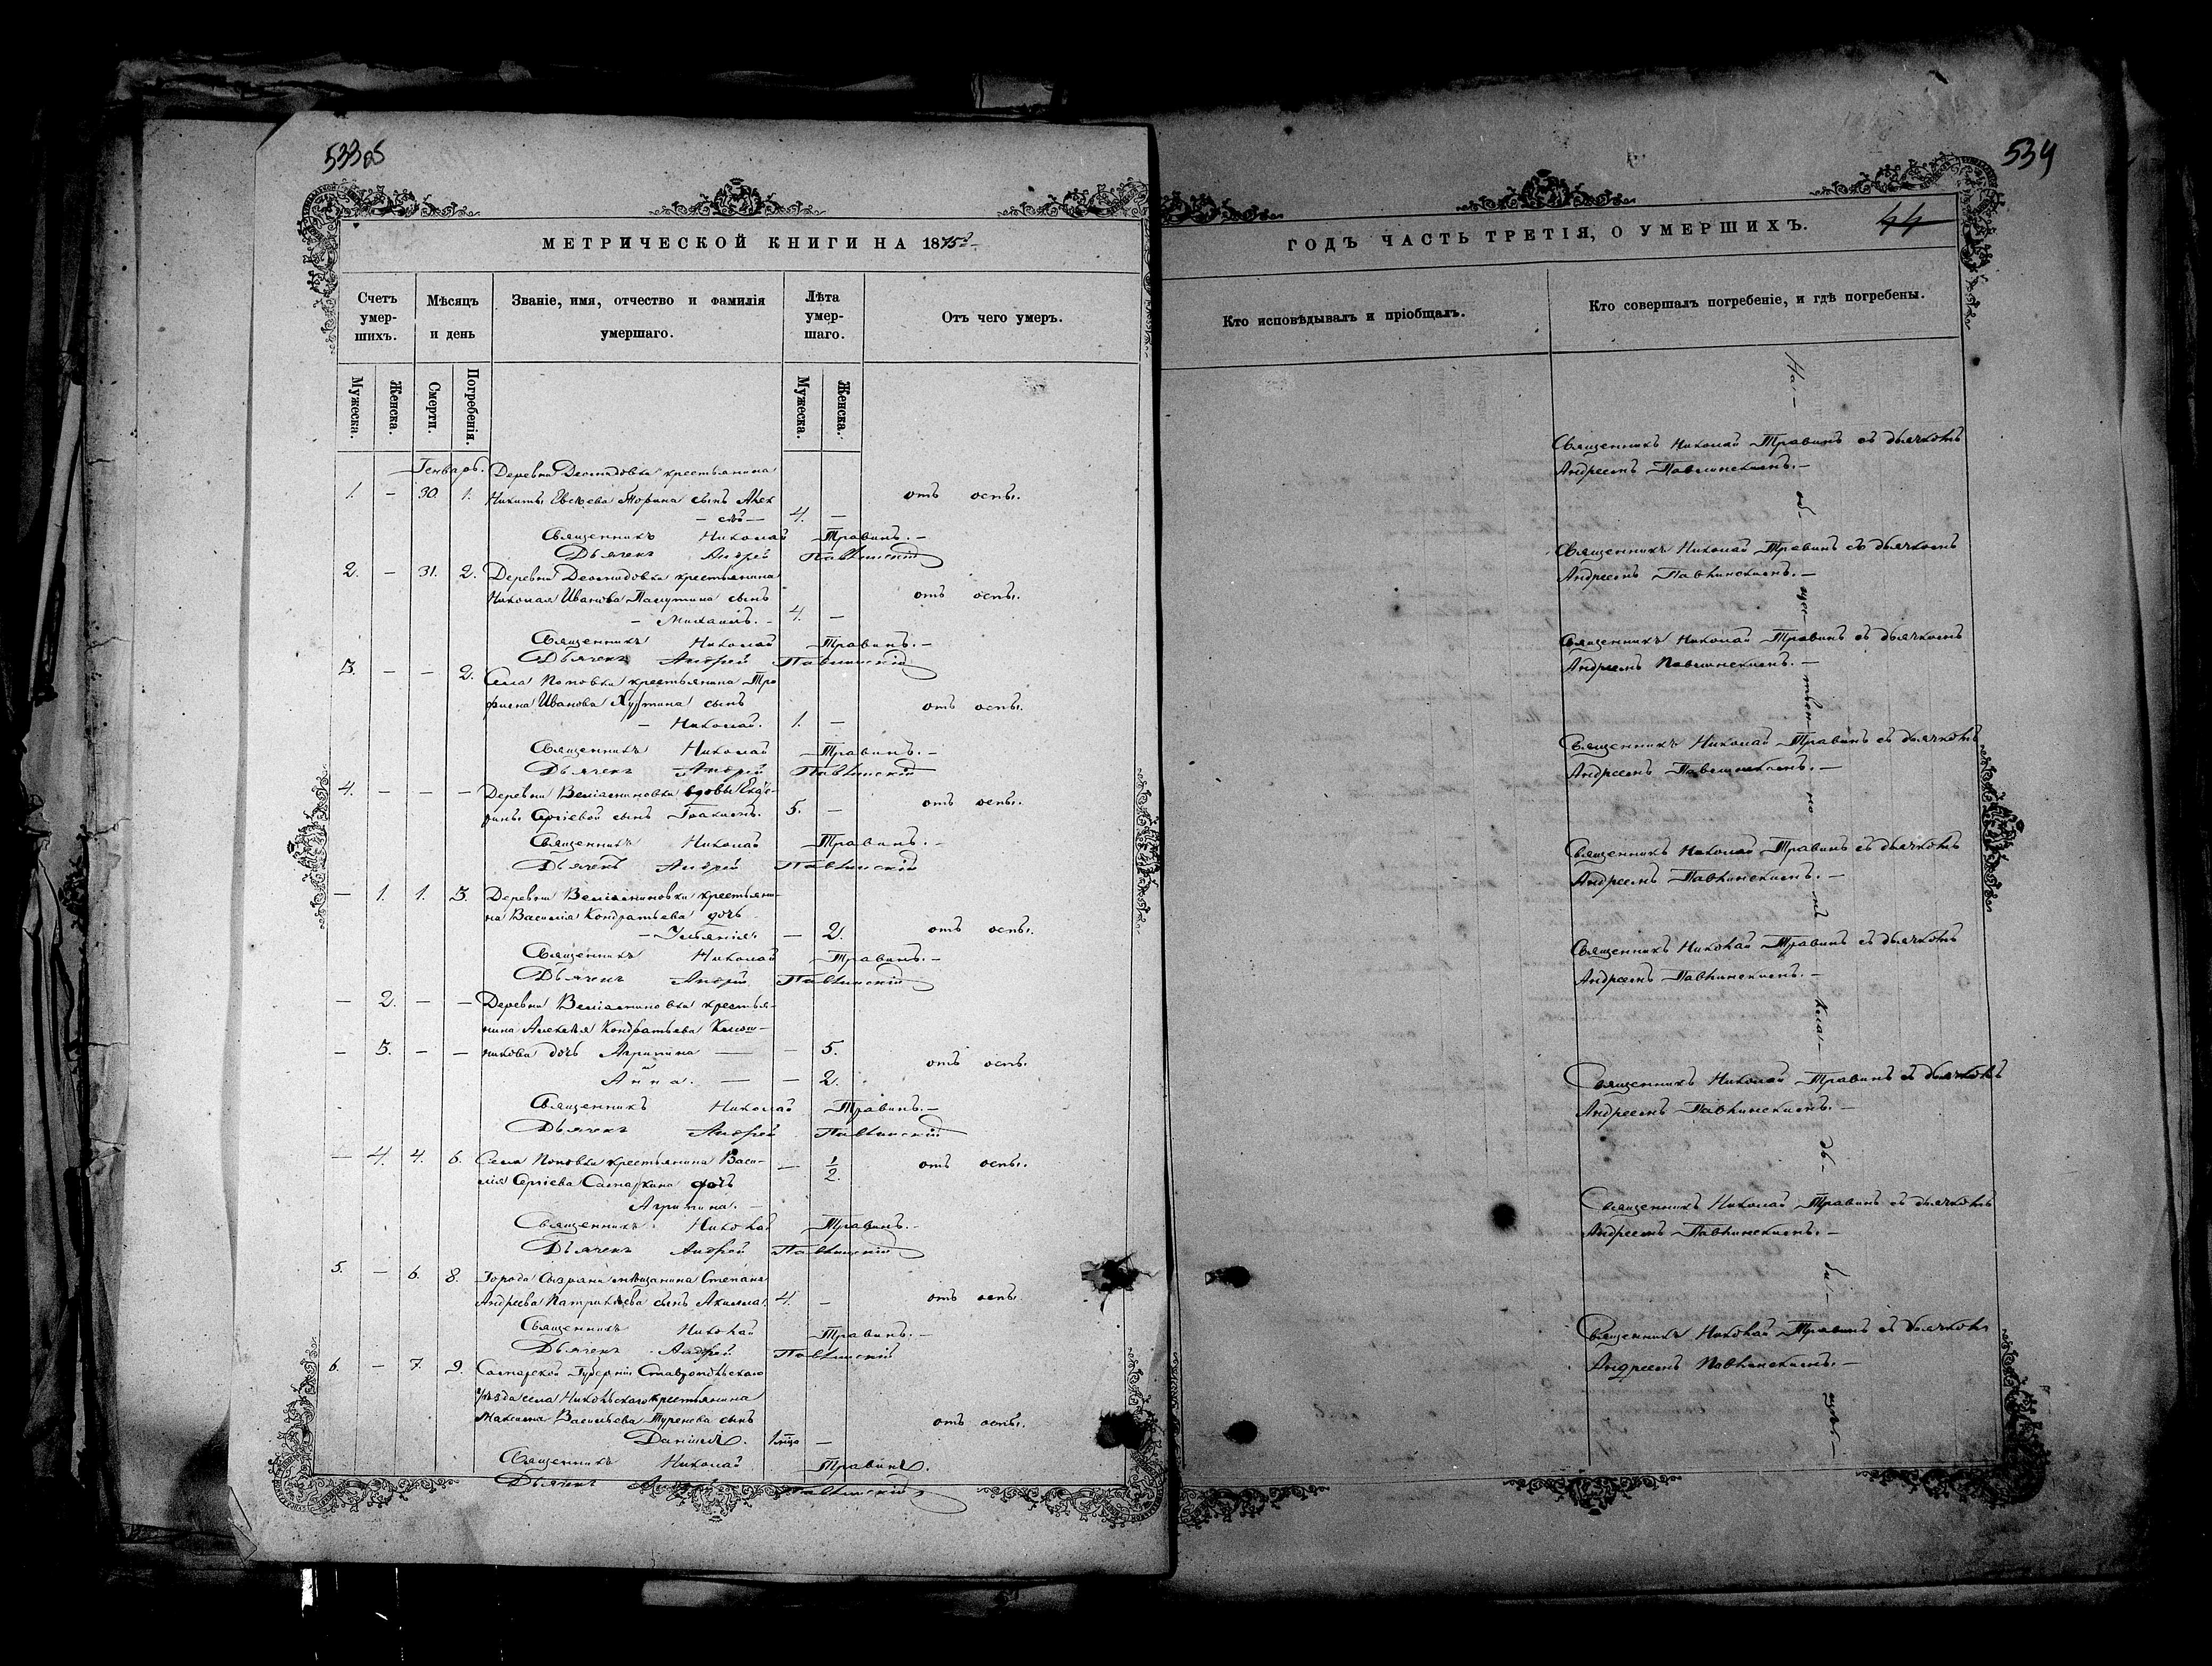 533об
МЕТРИЧЕСКОЙ КНИГИ НА 1875й
Счетъ умер-шихъ.
Мѣсяцъ и день
Званіе, имя, отчество и фамилія умершаго.
Лѣта умер-шаго.
Отъ чего умеръ.
Мужеска.
Женска.
Смерти.
Погребенія.
Мужеска.
Женска.
Генварь. Деревни крестьянина
1. – 30. 1. Никиты сынъ Алек
– сѣй – 4. – отъ оспы.
Священникъ Николай Травинъ. –
Дьячекъ Андрей Павлинскій
2. – 31. 2. Деревни крестьянина
Николая Иванова сынъ отъ оспы.
– Михаилъ. – 4. –
Священникъ Николай Травинъ. –
Дьячекъ Андрей Павлинскій
3. – – 2. Села Поповки крестьянина Тро
фима Иванова сынъ отъ оспы.
– Николай. 1. –
Священникъ Николай Травинъ. –
Дьячекъ Андрей Павлинскій
4. – – – Деревни вдовы
Сергіевой сынъ Іоакимъ. 5. – отъ оспы.
Священникъ Николай Травинъ. –
Дьячекъ Андрей Павлинскій
– 1. 1. 3. Деревни крестьяни-
на Василія Кондратьева дочь
– Ульянія. – 2. отъ оспы.
Священникъ Николай Травинъ. –
Дьячекъ Андрей Павлинскій
– 2. – – Деревни крестья-
нина Алексѣя Кондратьева
– 3. – – дочь Агрипина – – 5. отъ оспы.
и
Анна. – – 2.
Священникъ Николай Травинъ. –
Дьячекъ Андрей Павлинскій
– 4. 4. 6. Села Поповки крестьянина Васи- – 1/2. отъ оспы.
лія Сергіева дочь
Агрипина. –
Священникъ Николай Травинъ. –
Дьячекъ Андрей Павлинскій
5. – 6. 8. Города Сызрани мѣщанина Степана
Андреева Патрикѣева сынъ 4. – отъ оспы.
Священникъ Николай Травинъ. –
Дьячекъ Андрей Павлинскій
6. – 7. 9. Самарской Губерніи Ставропольскаго
уѣзда села Никольскаго крестьянина
Максима Васильева сынъ отъ оспы.
Даніилъ. 1 мца –
Священникъ Николай Травинъ.
Дьячекъ Андрей Павлинскій
534
44
ГОДЪ ЧАСТЬ ТРЕТІЯ, О УМЕРШИХЪ.
Кто исповѣдывалъ и пріобщалъ.
Кто совершалъ погребеніе, и гдѣ погребены.
Священникъ Николай Травинъ съ дьячкомъ
Андреемъ Павлинскимъ. –
Священникъ Николай Травинъ съ дьячкомъ
Андреемъ Павлинскимъ. –
Священникъ Николай Травинъ съ дьячкомъ
Андреемъ Павлинскимъ. –
Священникъ Николай Травинъ съ дьячкомъ
Андреемъ Павлинскимъ. –
Священникъ Николай Травинъ съ дьячкомъ
Андреемъ Павлинскимъ. –
Священникъ Николай Травинъ съ дьячкомъ
Андреемъ Павлинскимъ. –
Священникъ Николай Травинъ съ дьячкомъ
Андреемъ Павлинскимъ. –
Священникъ Николай Травинъ съ дьячкомъ
Андреемъ Павлинскимъ. –
Священникъ Николай Травинъ съ дьячкомъ
Андреемъ Павлинскимъ. –
На – об – щес – твен – но – мъ клад – би – щѣ –